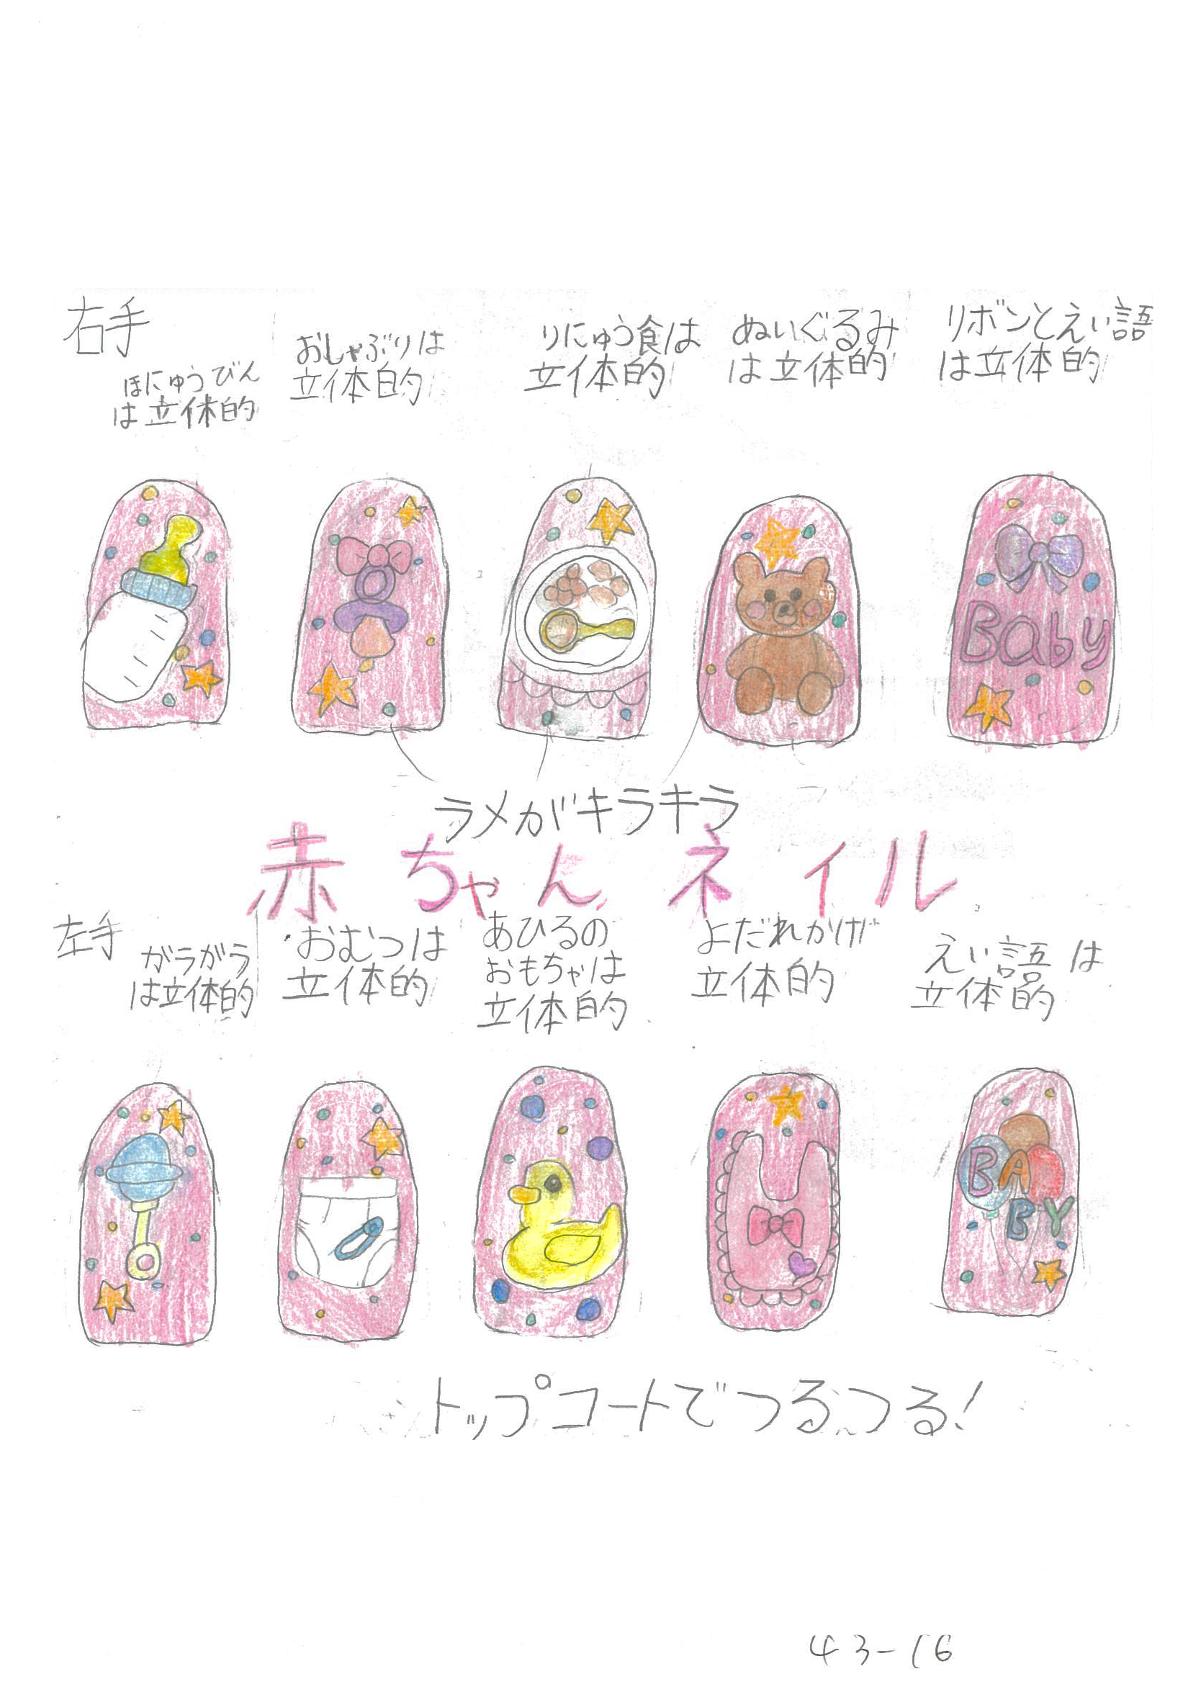 右手
ほにゅうびん
は立体的
おしゃぶりは
立体的
りにゅう食は
立体的
ぬいぐるみ
は立体的
リボンとえい語
は立体的
Baby
ラメがキラキラ
赤ちゃんネイル
左手
ガラガラ
は立体的
おむつは
立体的
あひるの
おもちゃは
立体的
よだれかけが
立体的
えい語は
立体的
BA
BY
トップコートでつるつる!
43-16